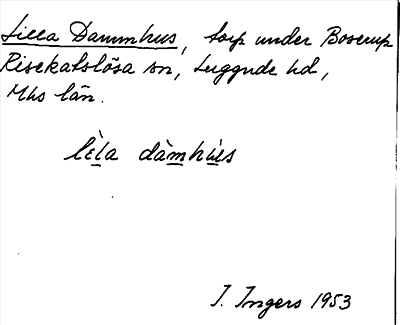 Lilla Dammhus, torp under Boserup
Risekatslösa sn, Luggude hd,
Mhs län.
lèla dàmhùs
I. Ingers 1953